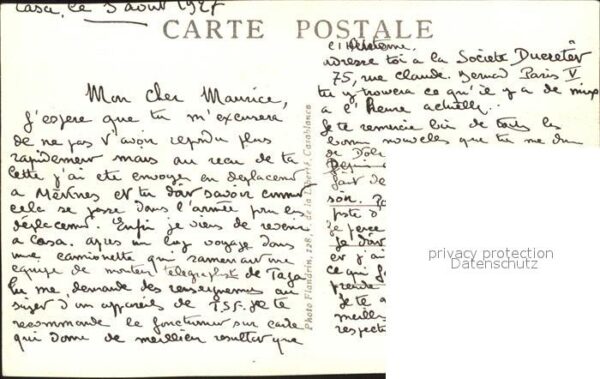 Casa, le 5 août 1927
CARTE POSTALE
Mon cher Maurice,
J'espère que tu m'excusera
de ne pas t'avoir répondu plus
rapidement mais au recu de ta
lettre j'ai été envoyer en déplacement
a Mèknes et tu dois savoir comment
cela se passe dans l'armée pour les
déplacement. Enfin je viens de revenir
a Casa. après un long voyage dans
une camionette qui ramenait une
équipe de monteur télégraphiste de Taza
Tu me demande des renseignements au
sujet d'un appareils de TSF. Je te
recommande le fonctionner sur cadre
qui donne de meilleur resultat que
l'Antenne.
adresse toi a la Societe Ducretet
75, rue Claude. Bernard Paris V
tu y trouvera ce qu'il y a de mieux
a l'heure actuelle.
Je te remercie bien de toutes les
bonnes nouvelles que tu me donne
de
Depuis
soit de
son.
poste d'
Je
et j'ai
ce qui
prendre
Je te
meilles
respect
Photo Flandrin, 228, r. de la Liberté, Casablanca
privacy protection
Datenschutz